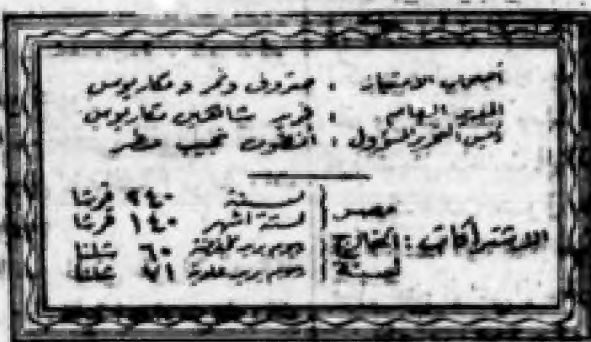 أصحاب الامتياز : صروف ونمر ومكاريوس
المدير العام : فريد شاهين مكاريوس
رئيس التحرير المسؤول : أنطون نجيب مطر
الاشتراكات :
مصر لسنة ٢٤٠ قرشا
لستة اشهر ١٤٠ قرشا
الخارج لسنة رسوم بريد ٦٠ شلنا
رسوم بريد عادية ٧١ شلنا